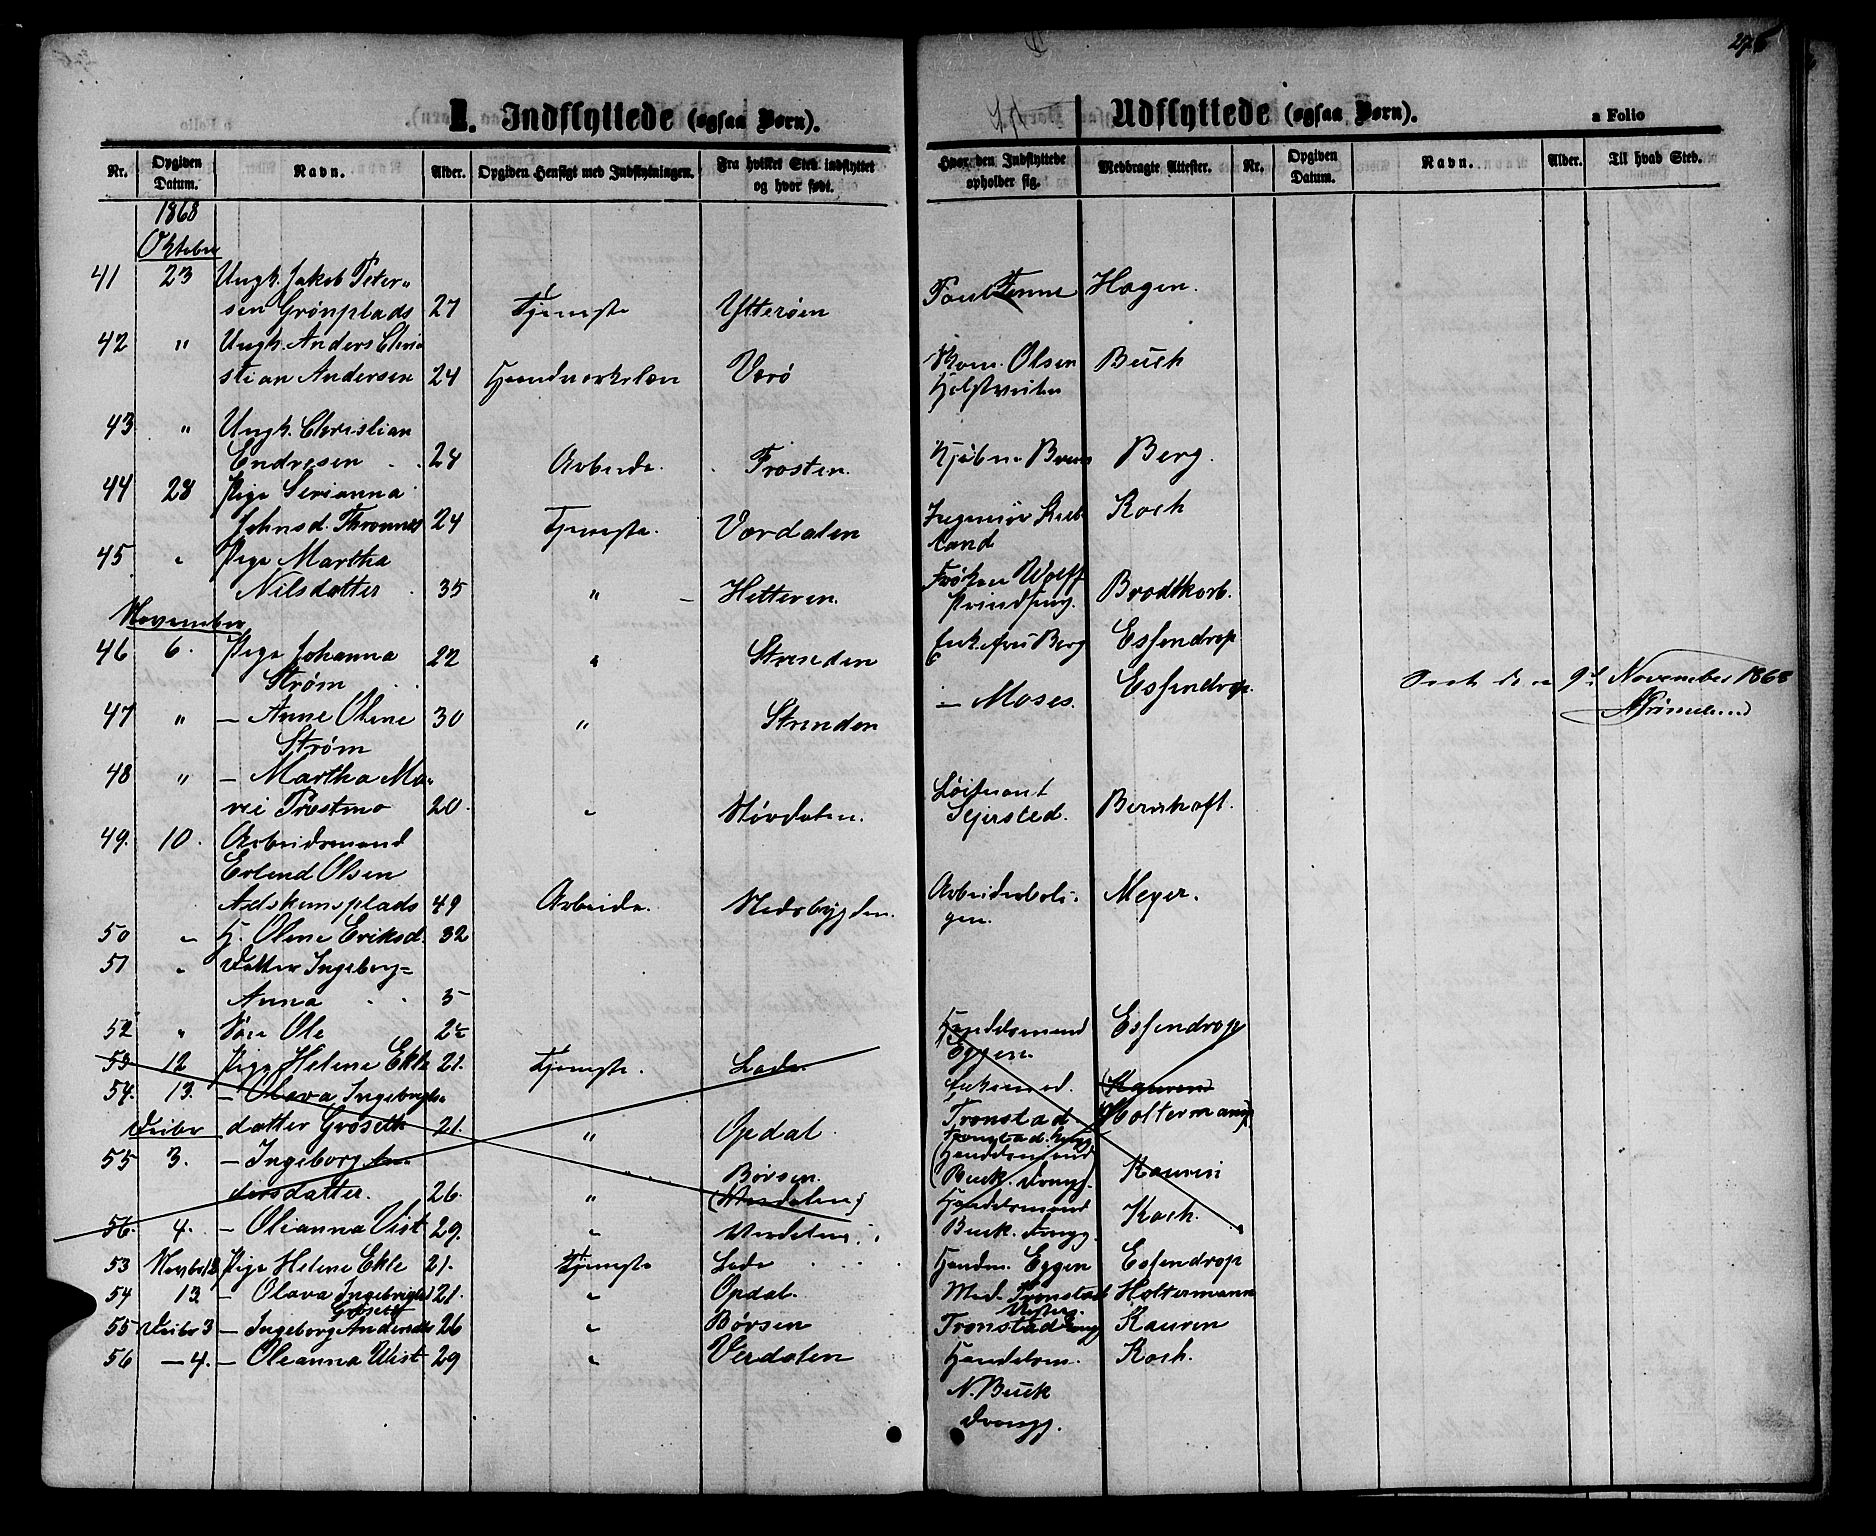 275
I. Indflyttede (ogsaa Børn).
Udflyttede (ogsaa Børn).
a Folio
Nr. Opgiven Datum. Navn. Alder. Opgiven Hensigt med Indflytningen. Fra hvilket Sted indflyttet og hvor født. Hvor den Indflyttede opholder sig. Medbragte Attester. Nr. Opgiven Datum. Navn. Alder. Til hvad Sted.
1868
Oktober
41 23 Ungk. Jakob Peter-
sen Grønplads 27 Tjeneste Ytterøen Hagen.
42 " Ungk. Anders Chri-
stian Andersen 24 Haandværkslæn Værø Olsen Buck
43 " Ungk. Christian
Endresen 24 Arbeide. Frosten. Berg.
44 28 Pige Serianna
Johnsd. 24 Tjeneste. Værdalen Ingeniør Koch
45 " Pige Martha
Nilsdatter 35 " Hitteren. Frøken Wolff Brodtkorb.
November
46 6. Pige Johanna 22 " Strinden Enkefru Berg Essendrop
Strøm
47 " — Anne Oline 30 " Strinden — Moses. Essendrop.
Strøm
9d November 1868
48 " — Martha Ma-
rei Præstmo 20 " Størdalen. Løitnant Sejersted. Bernhoft.
49. 10. Arbeidsmand
Erlend Olsen
49 Arbeide. Stadsbygden. Arbeiderboli-
gen. Meyer.
50 " H. Oline Eriksd. 32
51 " Datter Ingeborg-
Anna 5
52 " Søn Ole 2½
53 12 Pige Helene Ekle 21. Tjeneste. Lade. Handelsmand Eggen. Essendrop
54. 13. — Olava Ingebrigts-
Decbr datter Grøseth 21. " Opdal. Tronstad (Kauren) Holtermann
55 3. — Ingeborg An-
dersdatter. 26. " Børsen. (Værdalen) Handelsmand Buck. Kauren
56. 4. — Olianna Vist 29. " Værdalen. Handelsmand Buck. Koch.
53 Novbr 12 Pige Helene Ekle 21. Tjeneste Lade Handm. Eggen Essendrop
54 13 — Olava Ingebrigtsd 21. " Opdal. Mad. Tronstad Holtermann
Grøseth
55 Decbr 3 — Ingeborg Andersdtr 26 " Børsen Tronstad Kauren
56 — 4. — Oleanna Wist 29 " Verdalen Handelsm. Koch.
N. Buck